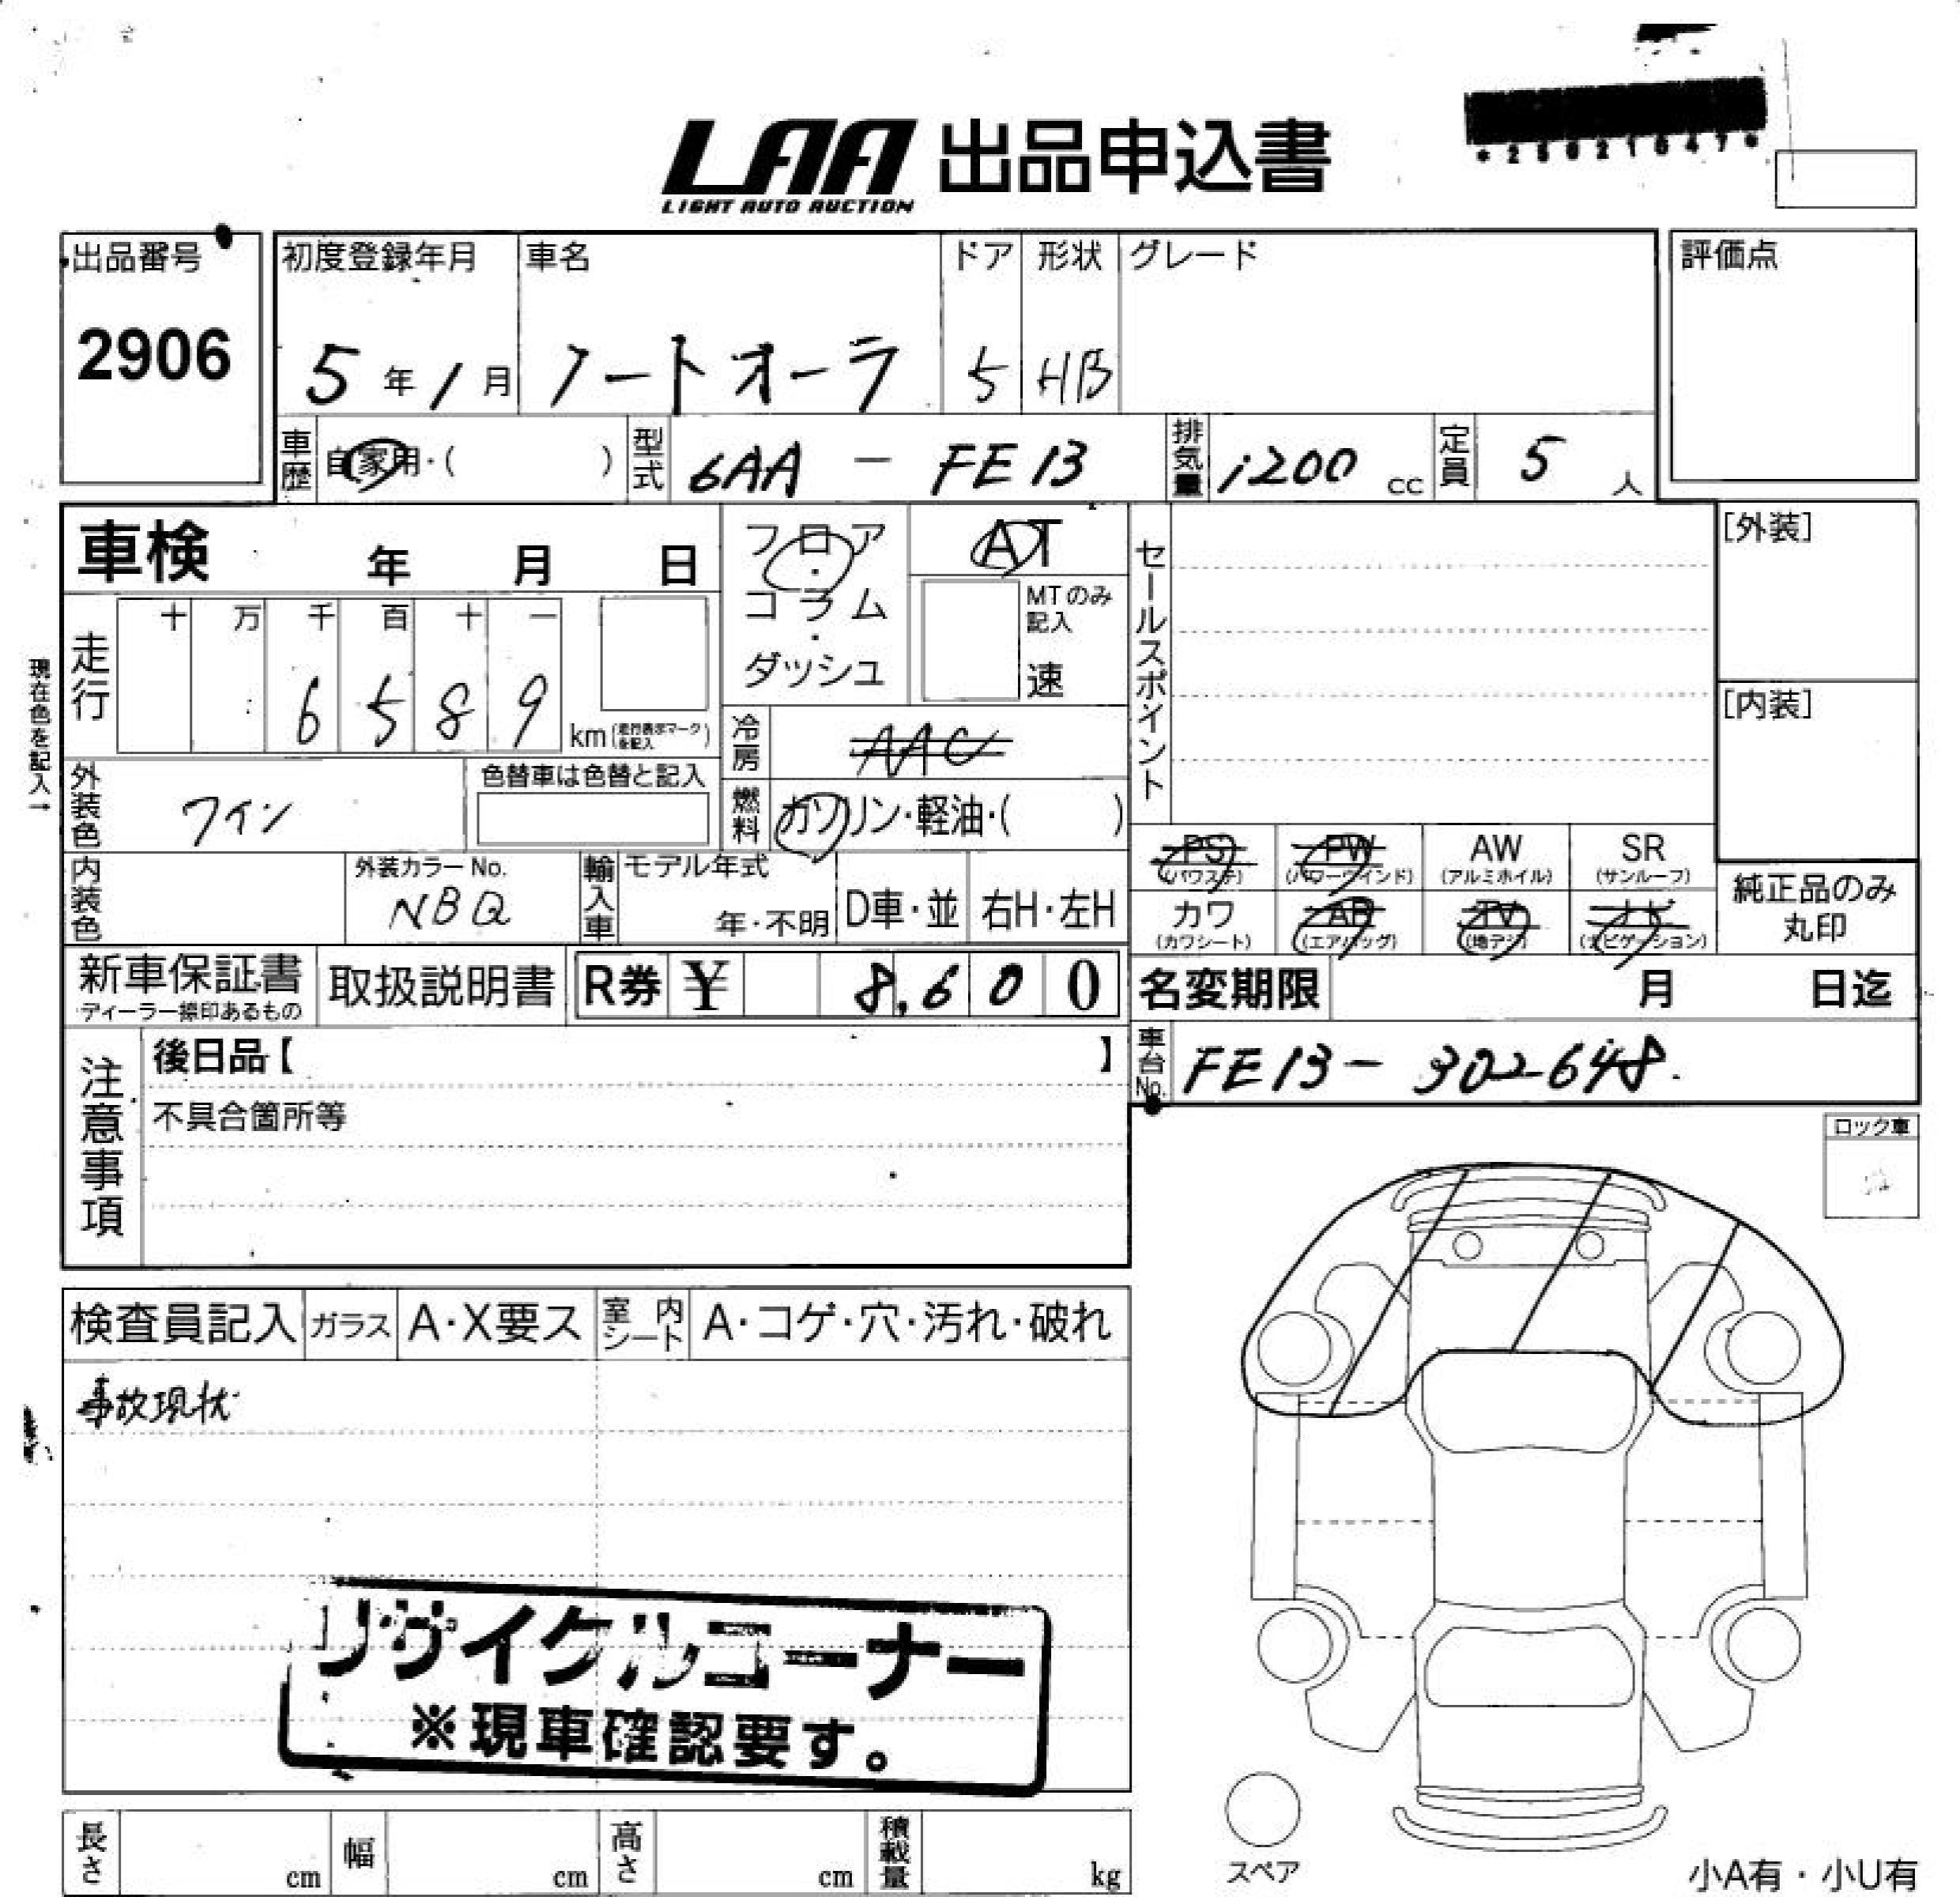 LAA 出品申込書
LIGHT AUTO AUCTION
出品番号 初度登録年月 車名 ドア 形状 グレード 評価点
2906 5年1月 ノートオーラ 5 HB
車歴 自家用・( ) 型式 6AA - FE13 排気量 1200 cc 定員 5 人
車検 年 月 日 フロア・コラム・ダッシュ AT セールスポイント [外装]
MTのみ記入 速
走行 十 万 千 百 十 一
6 5 8 9 km (走行表示マークを記入)
[内装]
現在色を記入→
冷房 AAC
外装色 ワイン 色替車は色替と記入 燃料 ガソリン・軽油・( )
PS (パワステ) PW (パワーウインド) AW (アルミホイル) SR (サンルーフ)
内装色 外装カラーNo. NBQ 輸入車 モデル年式 年・不明 D車・並 右H・左H
カワ (カワシート) AB (エアバッグ) TV (地デジ) ナビ (ナビゲーション) 純正品のみ丸印
新車保証書 ディーラー捺印あるもの 取扱説明書 R券 ¥ 8,600 名変期限 月 日迄
注意事項 後日品【 】 車台No. FE13-302648
不具合箇所等
ロック車
検査員記入 ガラス A・X要ス 室内シート A・コゲ・穴・汚れ・破れ
事故現状
リサイクルコーナー
※現車確認要す。
スペア
長さ cm 幅 cm 高さ cm 積載量 kg
小A有・小U有